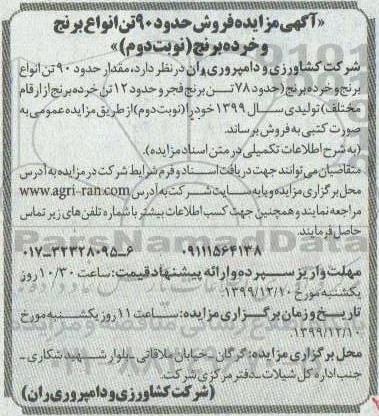 «آگهی مزایده فروش حدود ۹۰ تن انواع برنج
و خرده برنج (نوبت دوم)»
شرکت کشاورزی و دامپروری ران در نظر دارد، مقدار حدود ۹۰ تن انواع
برنج و خرده برنج (حدود ۷۸ تن برنج فجر و حدود ۱۲ تن خرده برنج از ارقام
مختلف) تولیدی سال ۱۳۹۹ خود را (نوبت دوم) از طریق مزایده عمومی به
صورت کتبی به فروش برساند.
(به شرح اطلاعات تکمیلی در متن اسناد مزایده).
متقاضیان می‌توانند جهت دریافت اسناد و فرم شرایط شرکت در مزایده به آدرس
محل برگزاری مزایده و یا به سایت شرکت به آدرس www.agri-ran.com
مراجعه نمایند و همچنین جهت کسب اطلاعات بیشتر با شماره تلفن‌های زیر تماس
حاصل فرمایند.
۰۹۱۱۱۵۶۴۱۳۸ ۶-۳۲۳۲۸۰۹۵-۰۱۷
مهلت واریز سپرده و ارائه پیشنهاد قیمت: ساعت ۱۰/۳۰ روز
یکشنبه مورخ ۱۳۹۹/۱۲/۱۰.
تاریخ و زمان برگزاری مزایده: ساعت ۱۱ روز یکشنبه مورخ
۱۳۹۹/۱۲/۱۰.
محل برگزاری مزایده: گرگان - خیابان ملاقاتی - بلوار شهید شکاری -
جنب اداره کل شیلات - دفتر مرکزی شرکت.
(شرکت کشاورزی و دامپروری ران)